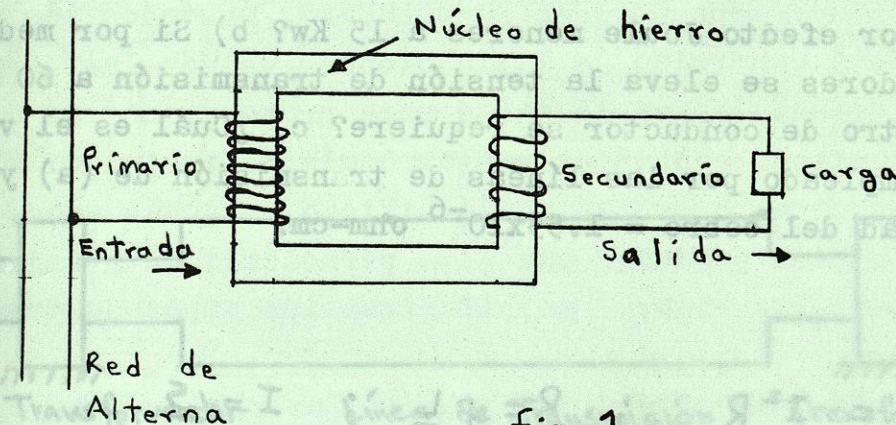 Núcleo de hierro
Primario
Secundario
Carga
Entrada
Salida
Red de
Alterna
fig 1